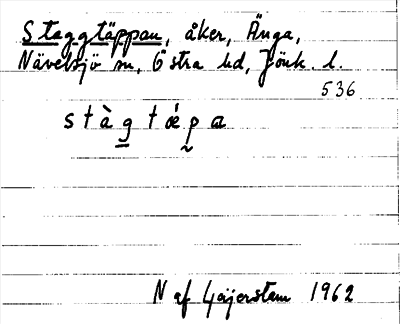 Staggtäppan, åker, Änga,
Nävelsjö sn, Östra hd, Jönk. l.
536
stàg tǽpa
N af Geijerstam 1962